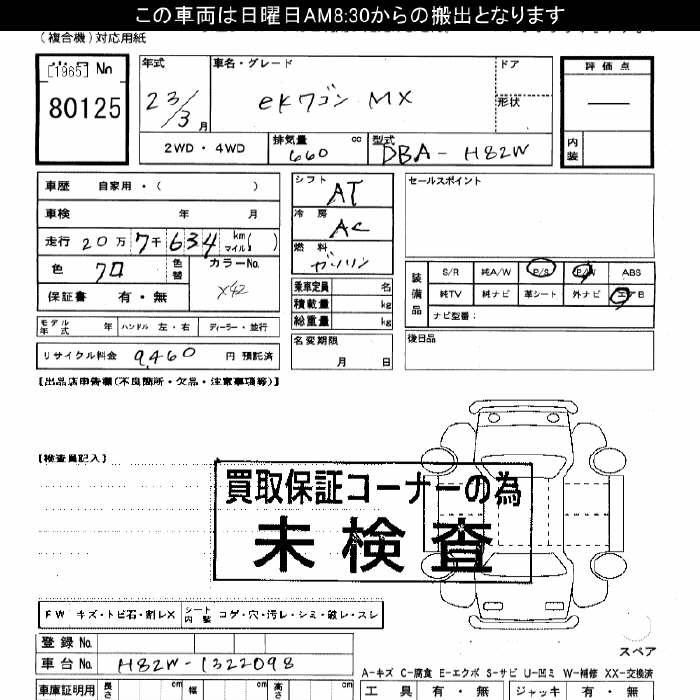 この車両は日曜日AM8:30からの搬出となります
（複合機）対応用紙
[1965] No
80125
年式
23/3月
車名・グレード
eKワゴン MX
ドア
形状
評価点
―
内装
2WD・4WD
排気量
660
cc
型式
DBA-H82W
車歴 自家用・（ ）
車検 年 月
走行 20万7千634 km マイル( )
色 クロ
色替
カラーNo.
X42
保証書 有・無
モデル年式 年 ハンドル 左・右 ディーラー・並行
リサイクル料金 9,460 円 預託済
シフト
AT
冷房
AC
燃料
ガソリン
乗車定員 名
積載量 kg
総重量 kg
名変期限
月 日
セールスポイント
装備品
S/R 純A/W P/S P/W ABS
純TV 純ナビ 革シート 外ナビ エアB
ナビ型番：
後日品
【出品店申告欄（不良箇所・欠品・注意事項等）】
【検査員記入】
買取保証コーナーの為
未検査
FW キズ・トビ石・割レX
シート内装 コゲ・穴・汚レ・シミ・破レ・スレ
登録 No.
車台 No. H82W-1322098
車庫証明用 長さ cm 幅 cm 高さ cm
スペア
A-キズ C-腐食 E-エクボ S-サビ U-凹ミ W-補修 XX-交換済
工具 有・無 ジャッキ 有・無